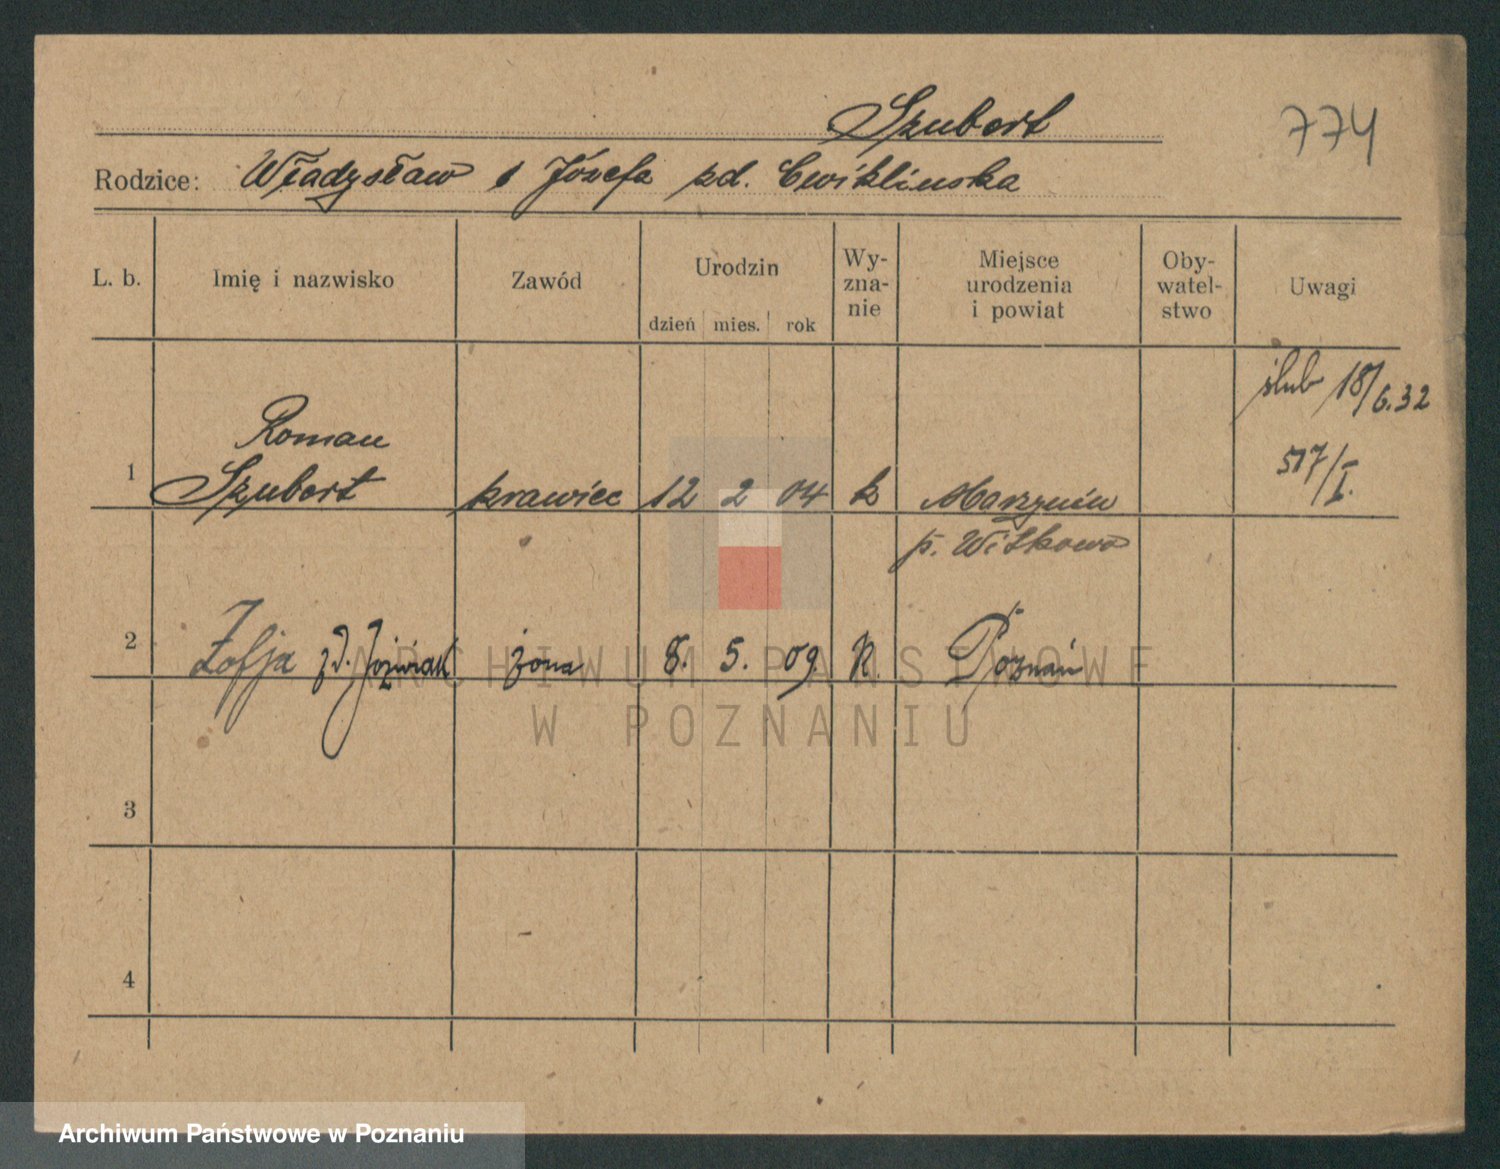 Szubert
774
Rodzice: Władysław i Józefa zd. Cwiklinska
L. b. Imię i nazwisko Zawód Urodzin dzień mies. rok Wy-zna-nie Miejsce urodzenia i powiat Oby-watel-stwo Uwagi
ślub 18/6.32
Roman
1 Szubert krawiec 12 2 04 k Marzynin 517/I.
p. Witkowo
2 Zofja zd. Jóźwiak żona 8. 5. 09. K. Poznań
ARCHIWUM PAŃSTWOWE
W POZNANIU
3
4
Archiwum Państwowe w Poznaniu